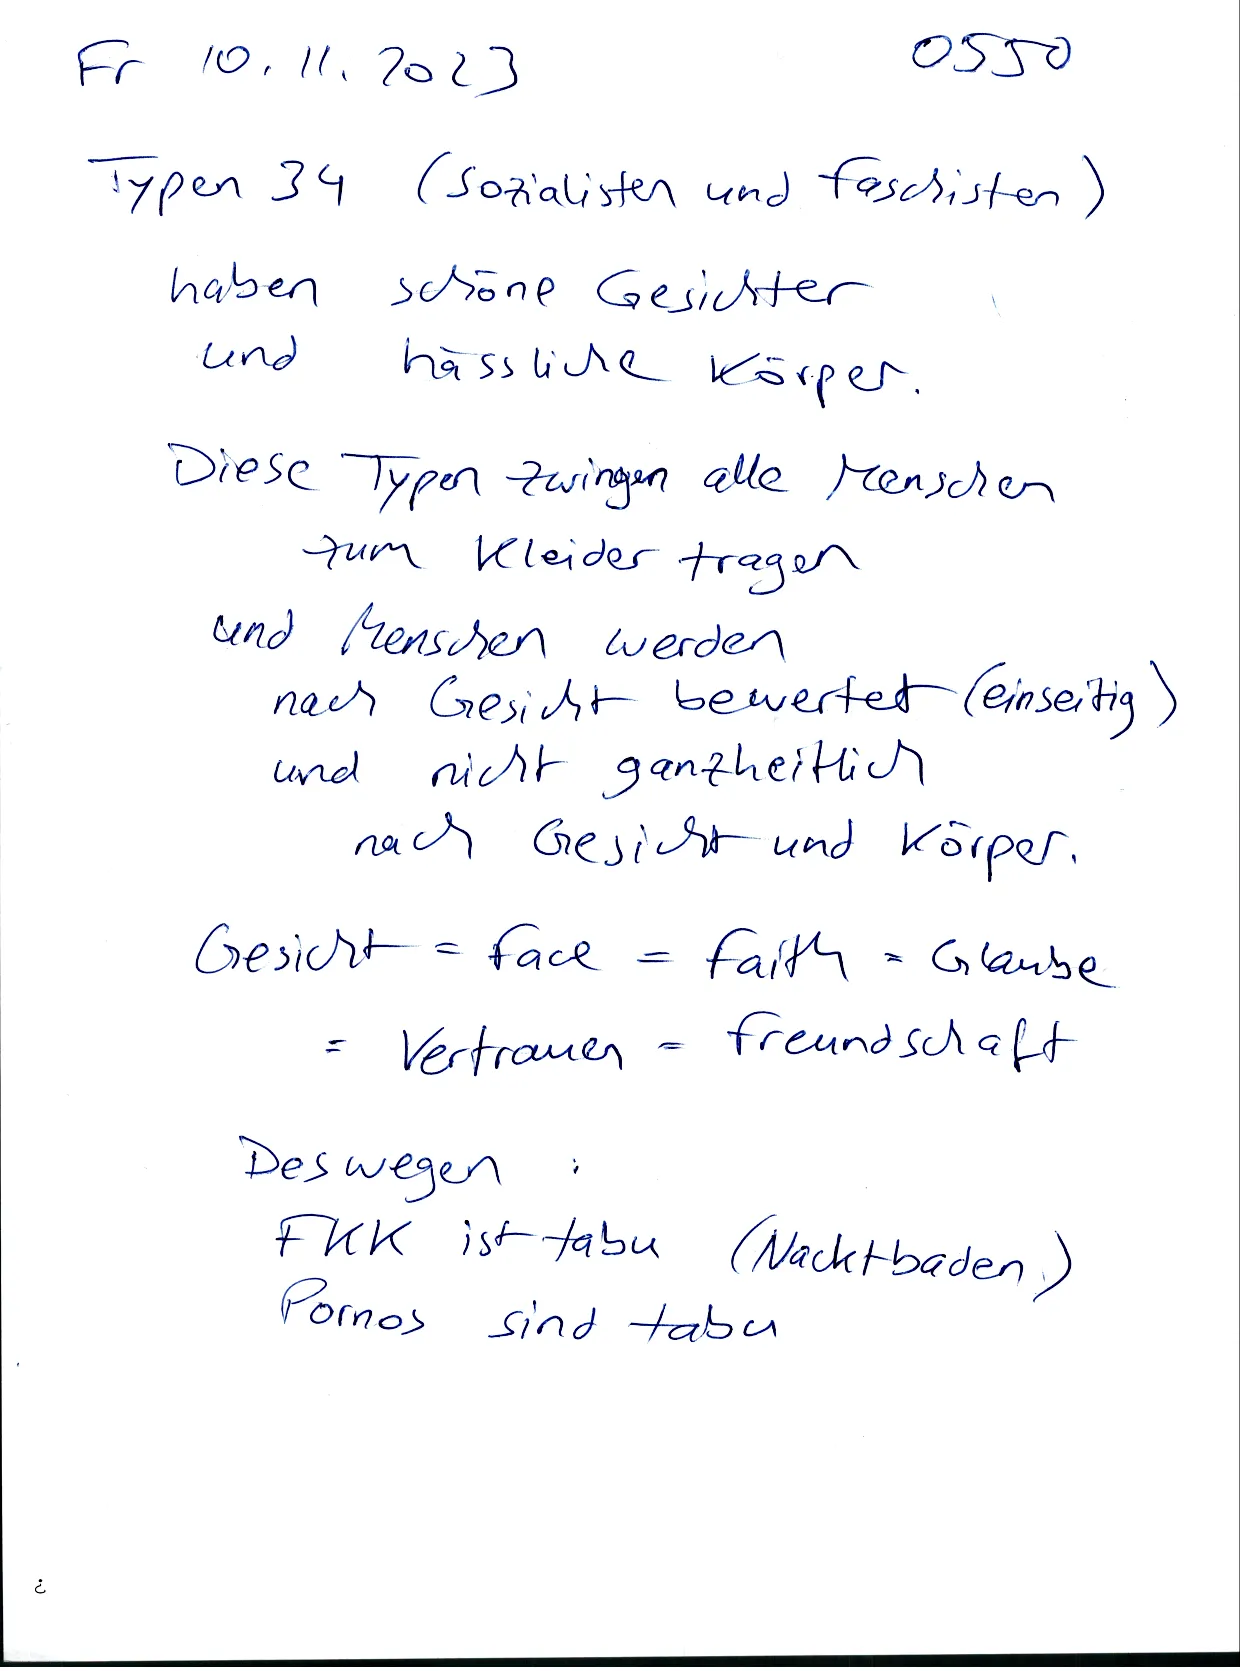 Fr 10.11.2023 0550
Typen 34 (Sozialisten und Faschisten)
haben schöne Gesichter
und hässliche Körper.
Diese Typen zwingen alle Menschen
zum Kleider tragen
und Menschen werden
nach Gesicht bewertet (einseitig)
und nicht ganzheitlich
nach Gesicht und Körper.
Gesicht = Face = Faith = Glaube
= Vertrauen = Freundschaft
Deswegen :
FKK ist tabu (Nacktbaden)
Pornos sind tabu
¿